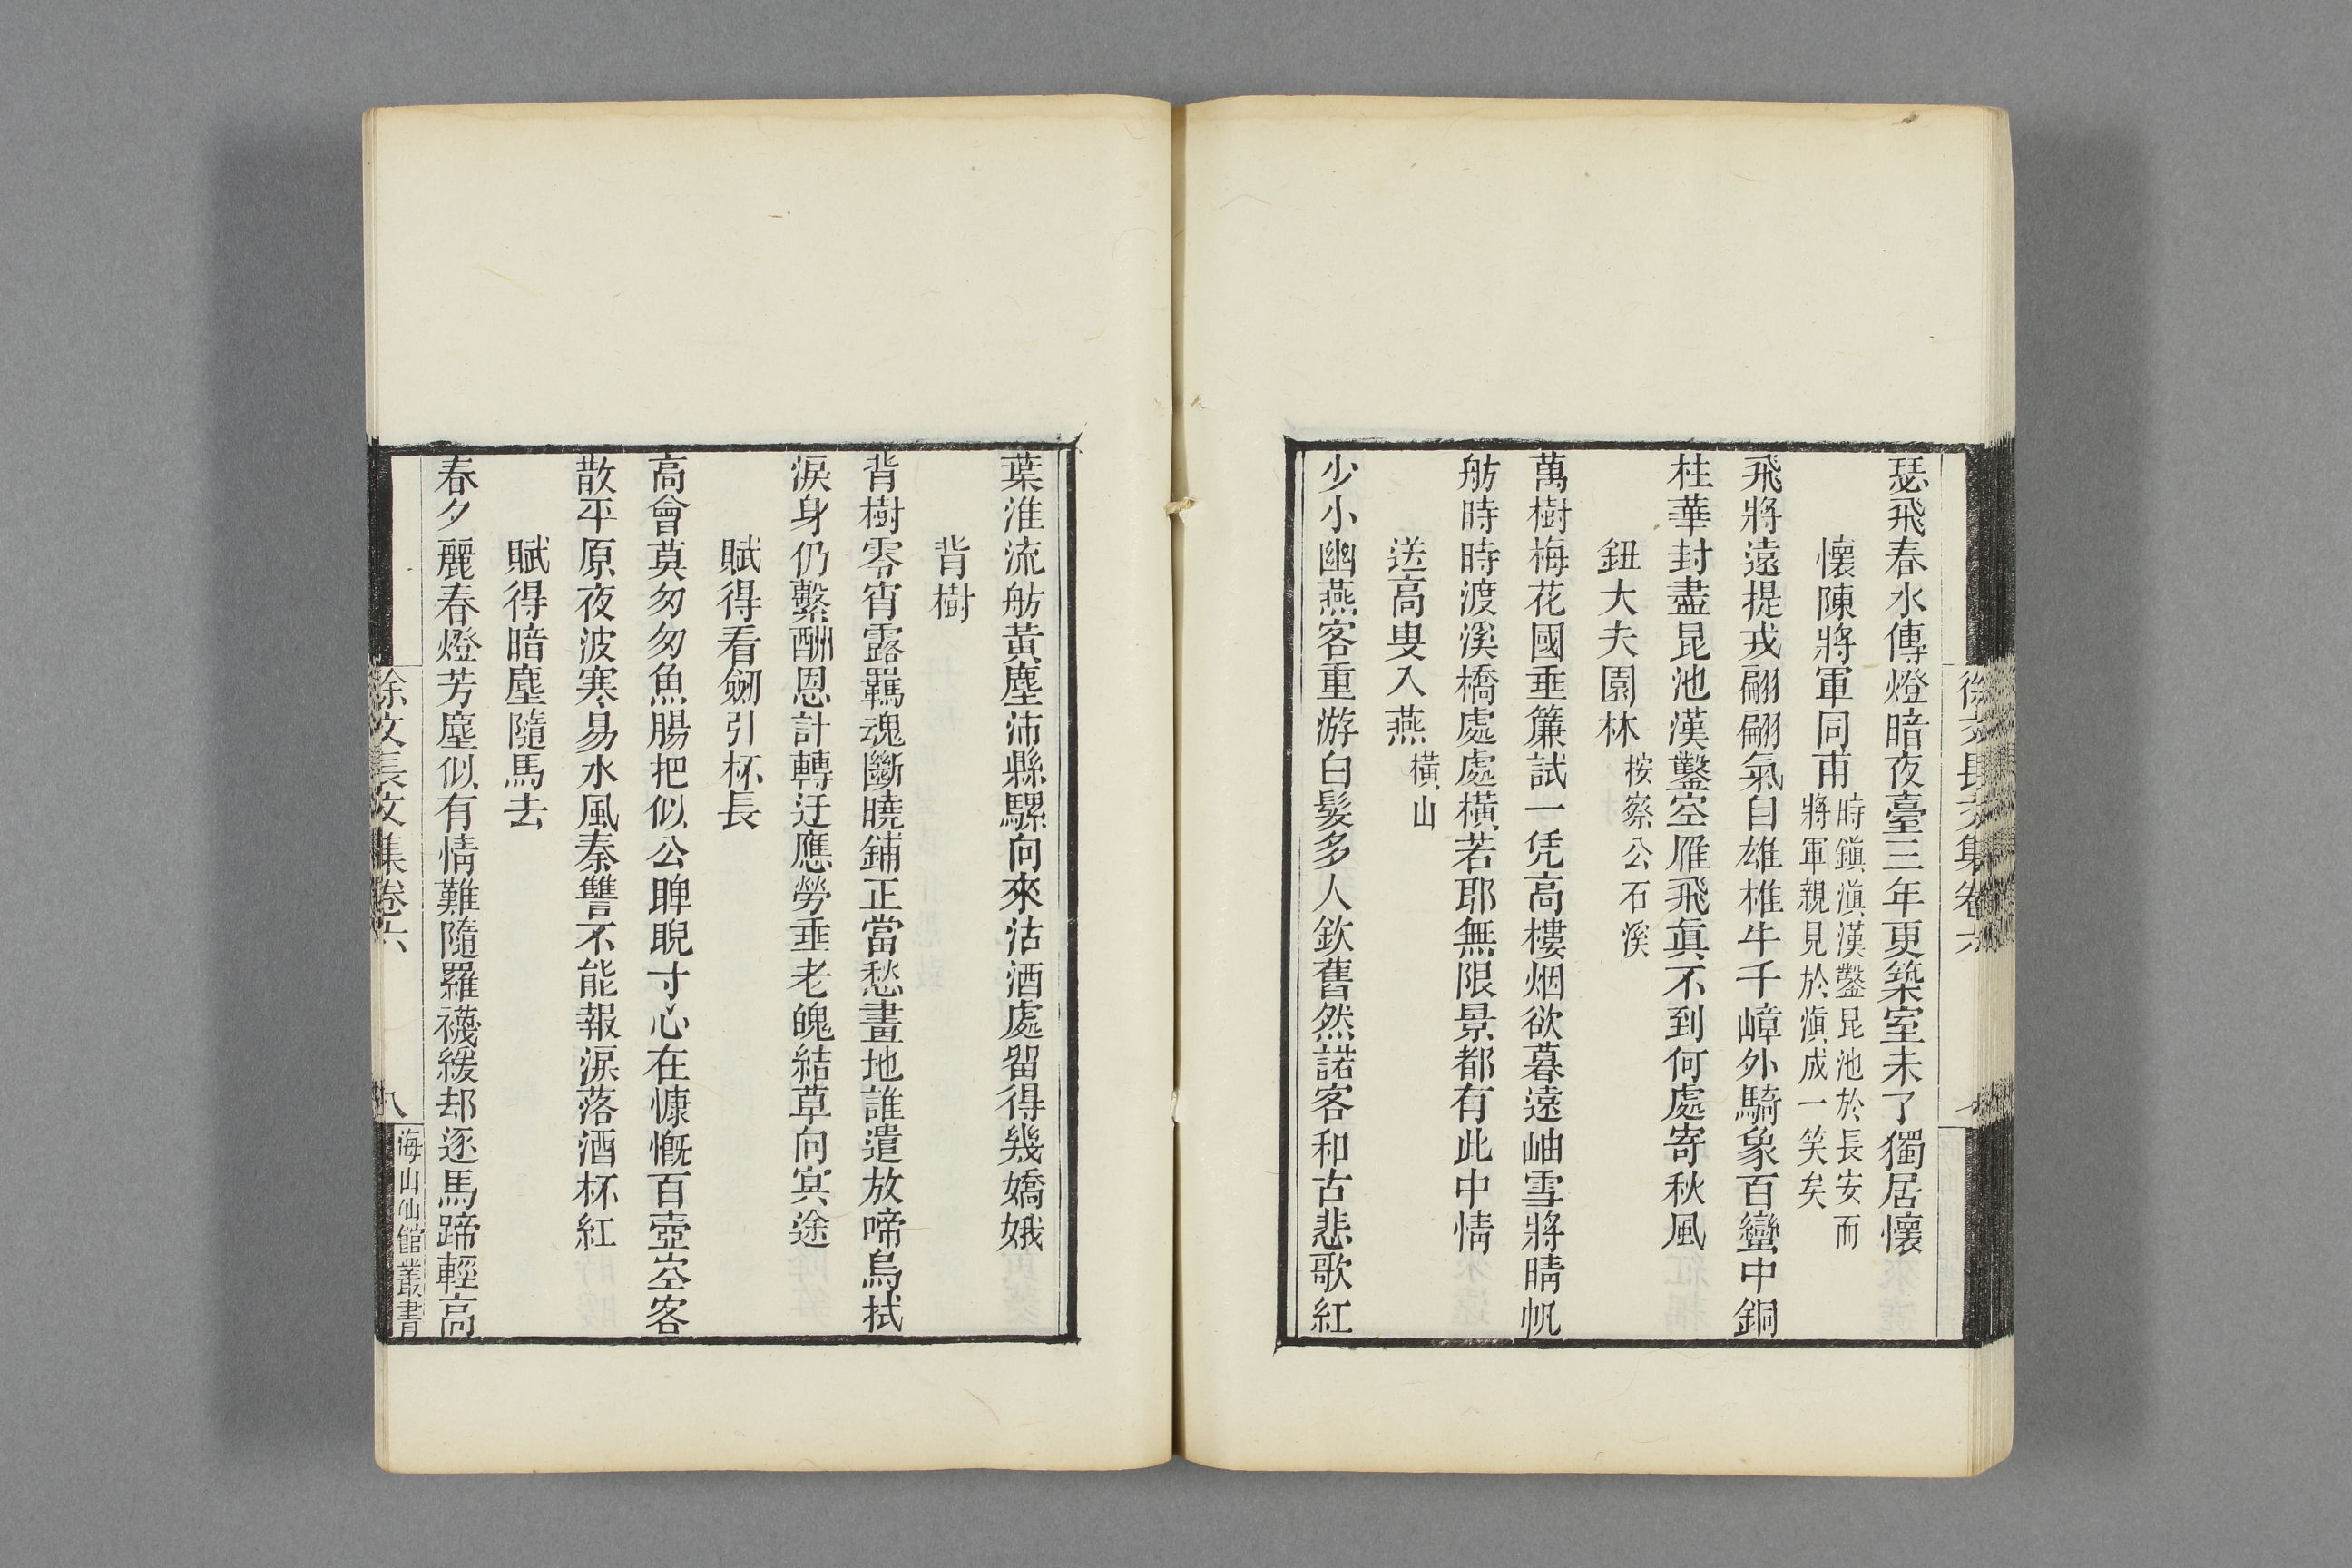 瑟飛春水傳燈暗夜臺三年更築室未了獨居懷
懷陳將軍同甫
時鎭滇漢鑿昆池於長安而
將軍親見於滇成一笑矣
飛將遠提戎翩翩氣自雄椎牛千嶂外騎象百蠻中銅
柱華封盡昆池漢鑿空雁飛眞不到何處寄秋風
鈕大夫園林
按察公石溪
萬樹梅花國垂簾試一凭高樓烟欲暮遠岫雪將晴帆
舫時時渡溪橋處處橫若耶無限景都有此中情
送高叟入燕
橫山
少小幽燕客重游白髮多人欽舊然諾客和古悲歌紅
徐文長文集卷六
葉淮流舫黃塵沛縣騾向來沽酒處留得幾嬌娥
背樹
背樹零宵露羈魂斷曉鋪正當愁畫地誰遣放啼烏拭
淚身仍繫酬恩計轉迂應勞垂老媿結草向冥途
賦得看劒引杯長
高會莫匆匆魚腸把似公睥睨寸心在慷慨百壺空客
散平原夜波寒易水風秦讐不能報淚落酒杯紅
賦得暗塵隨馬去
春夕麗春燈芳塵似有情難隨羅襪緩却逐馬蹄輕高
徐文長文集卷六
八
海山仙館叢書